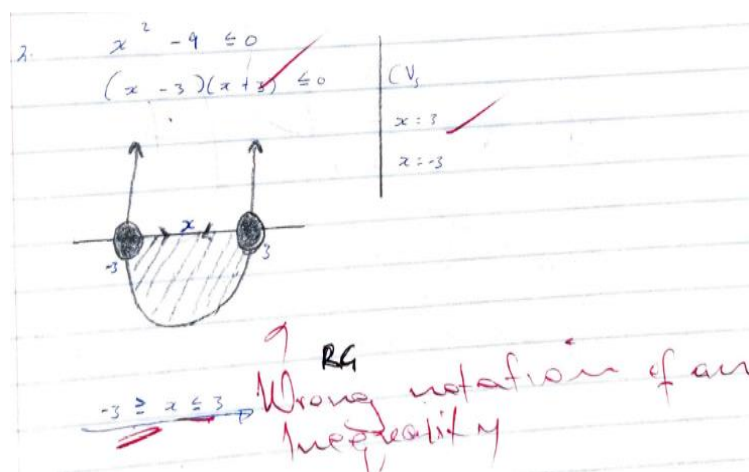 2. x² - 9 ≤ 0
(x - 3)(x + 3) ≤ 0
CVs
x = 3
x = -3
x
-3 3
RG
-3 ≥ x ≤ 3
Wrong notation of an
Inequality